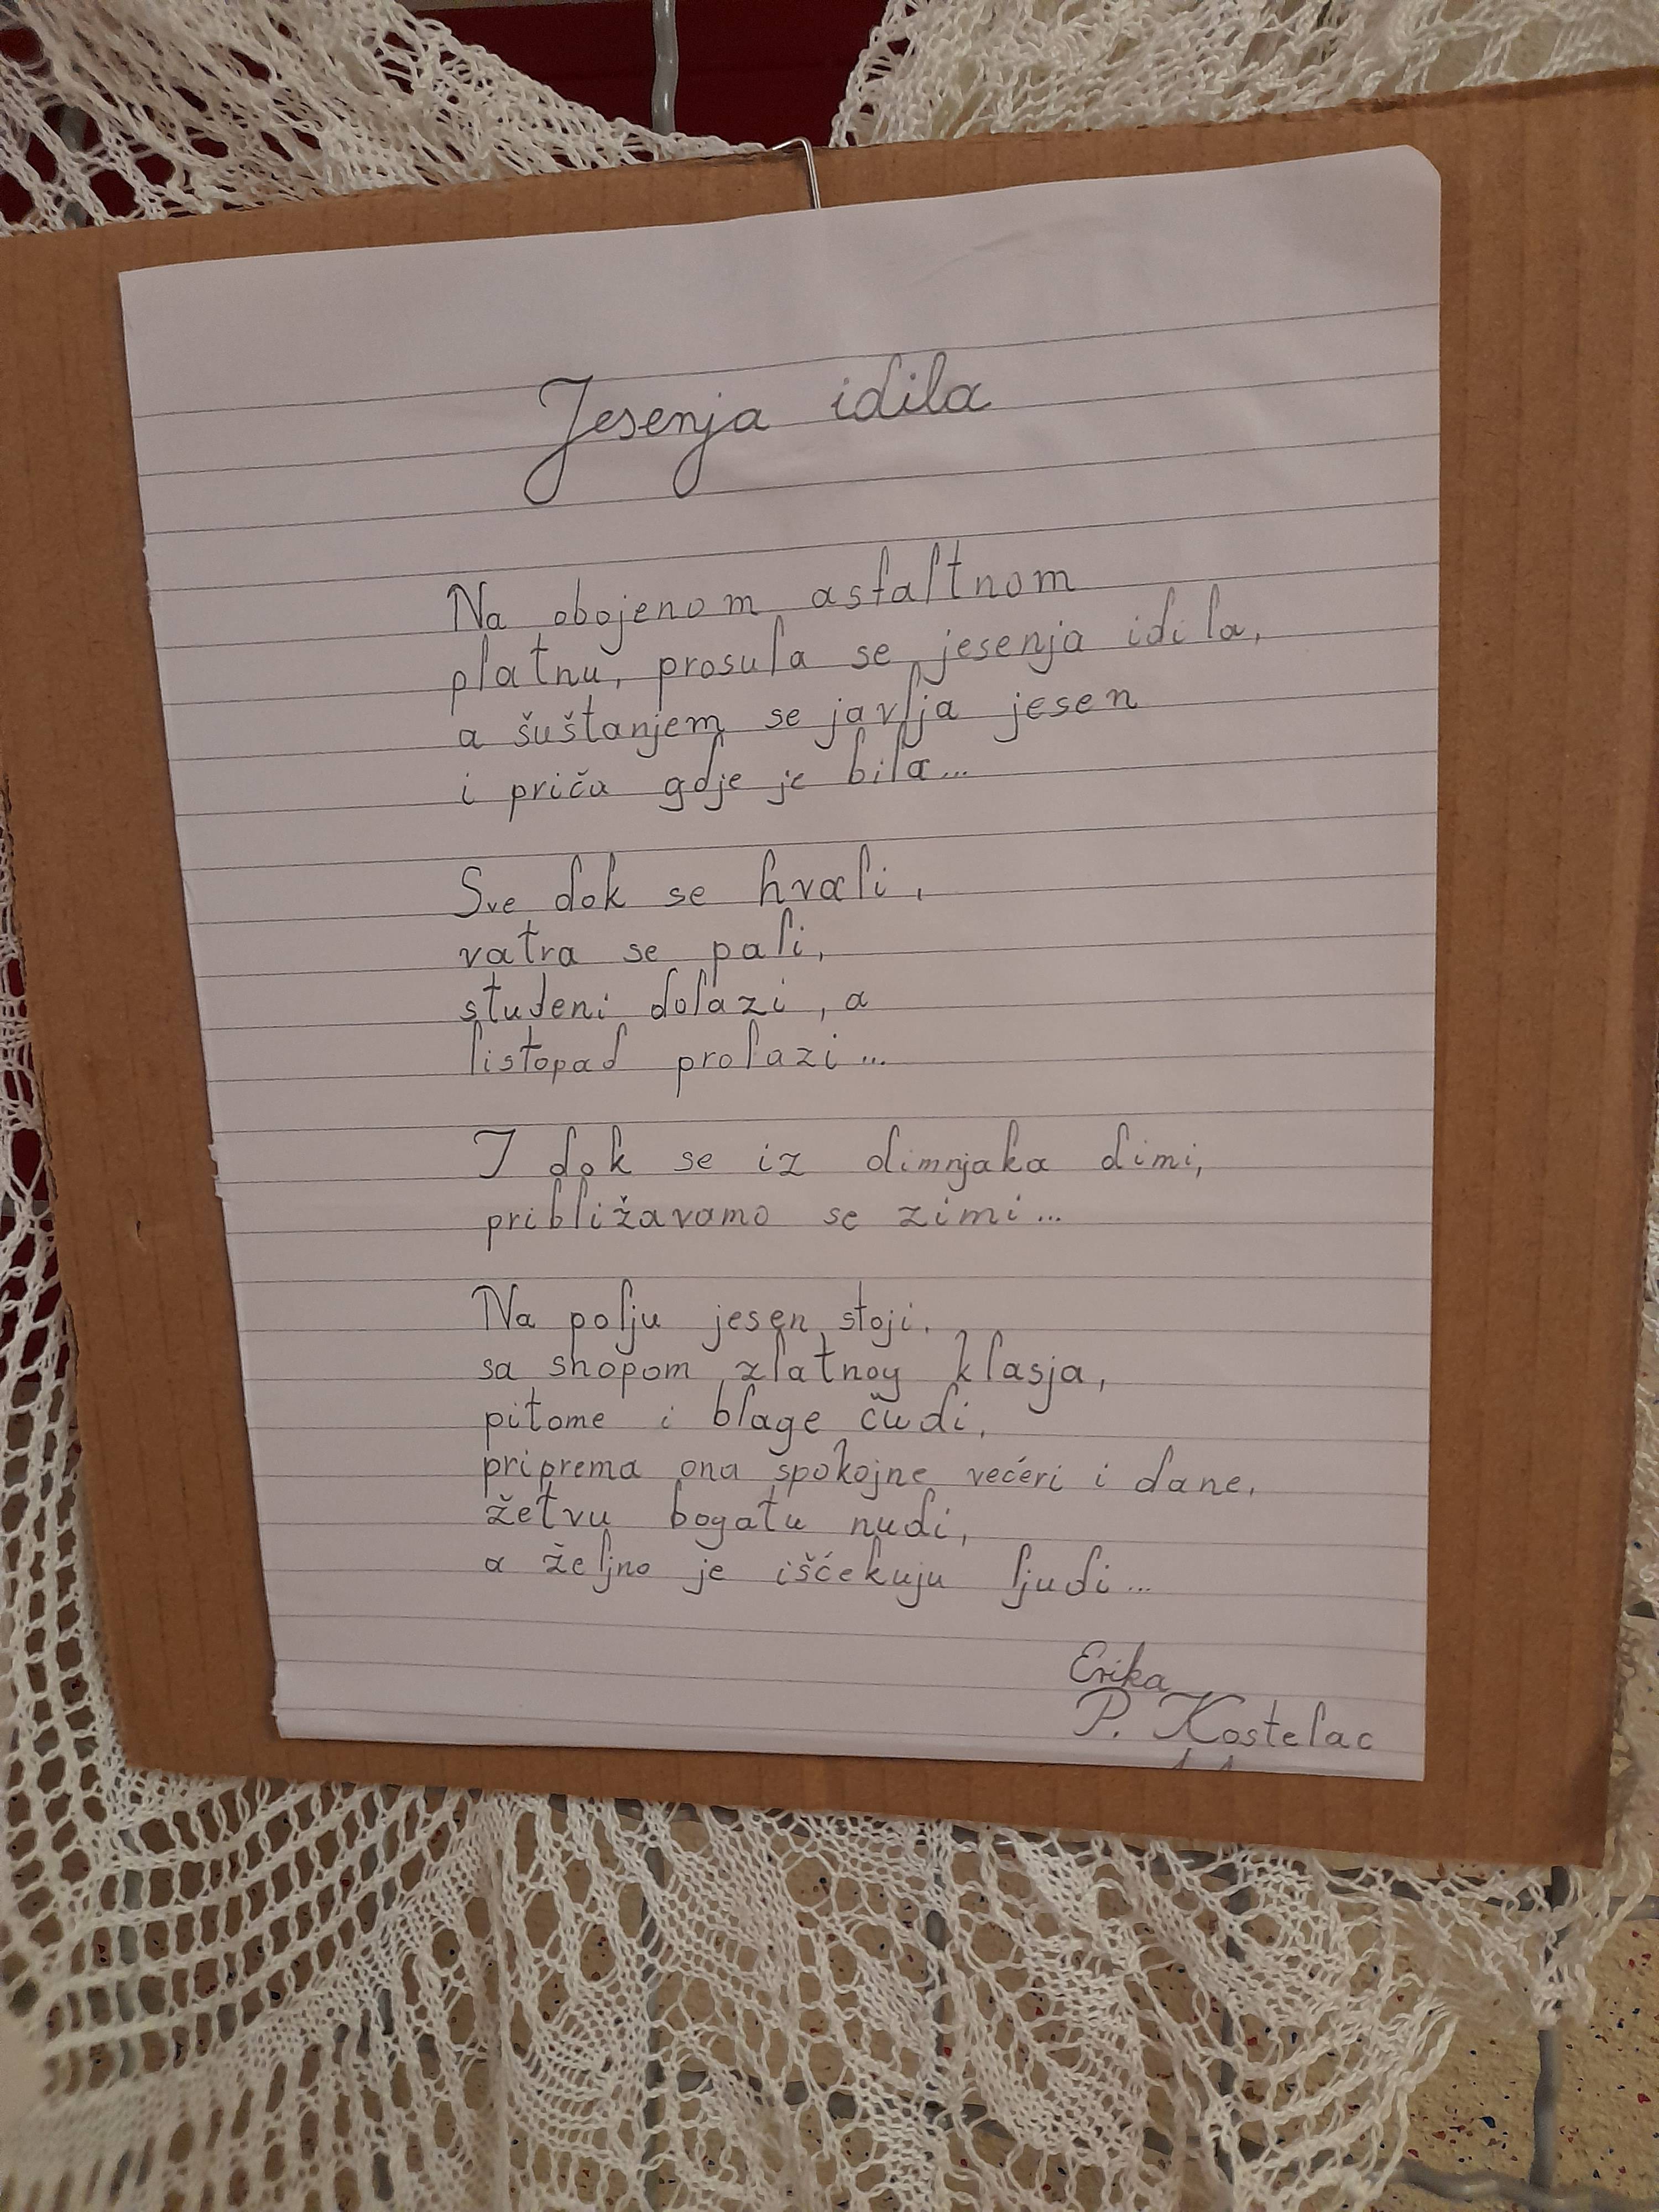 Jesenja idila
Na obojenom asfaltnom
platnu, prosula se jesenja idila,
a šuštanjem se javlja jesen
i priča gdje je bila...
Sve dok se hvali,
vatra se pali,
studeni dolazi, a
listopad prolazi...
I dok se iz dimnjaka dimi,
približavamo se zimi...
Na polju jesen stoji,
sa snopom zlatnog klasja,
pitome i blage čudi,
priprema ona spokojne većeri i dane,
žetvu bogatu nudi,
a željno je išćekuju ljudi...
Erika
P. Kostelac